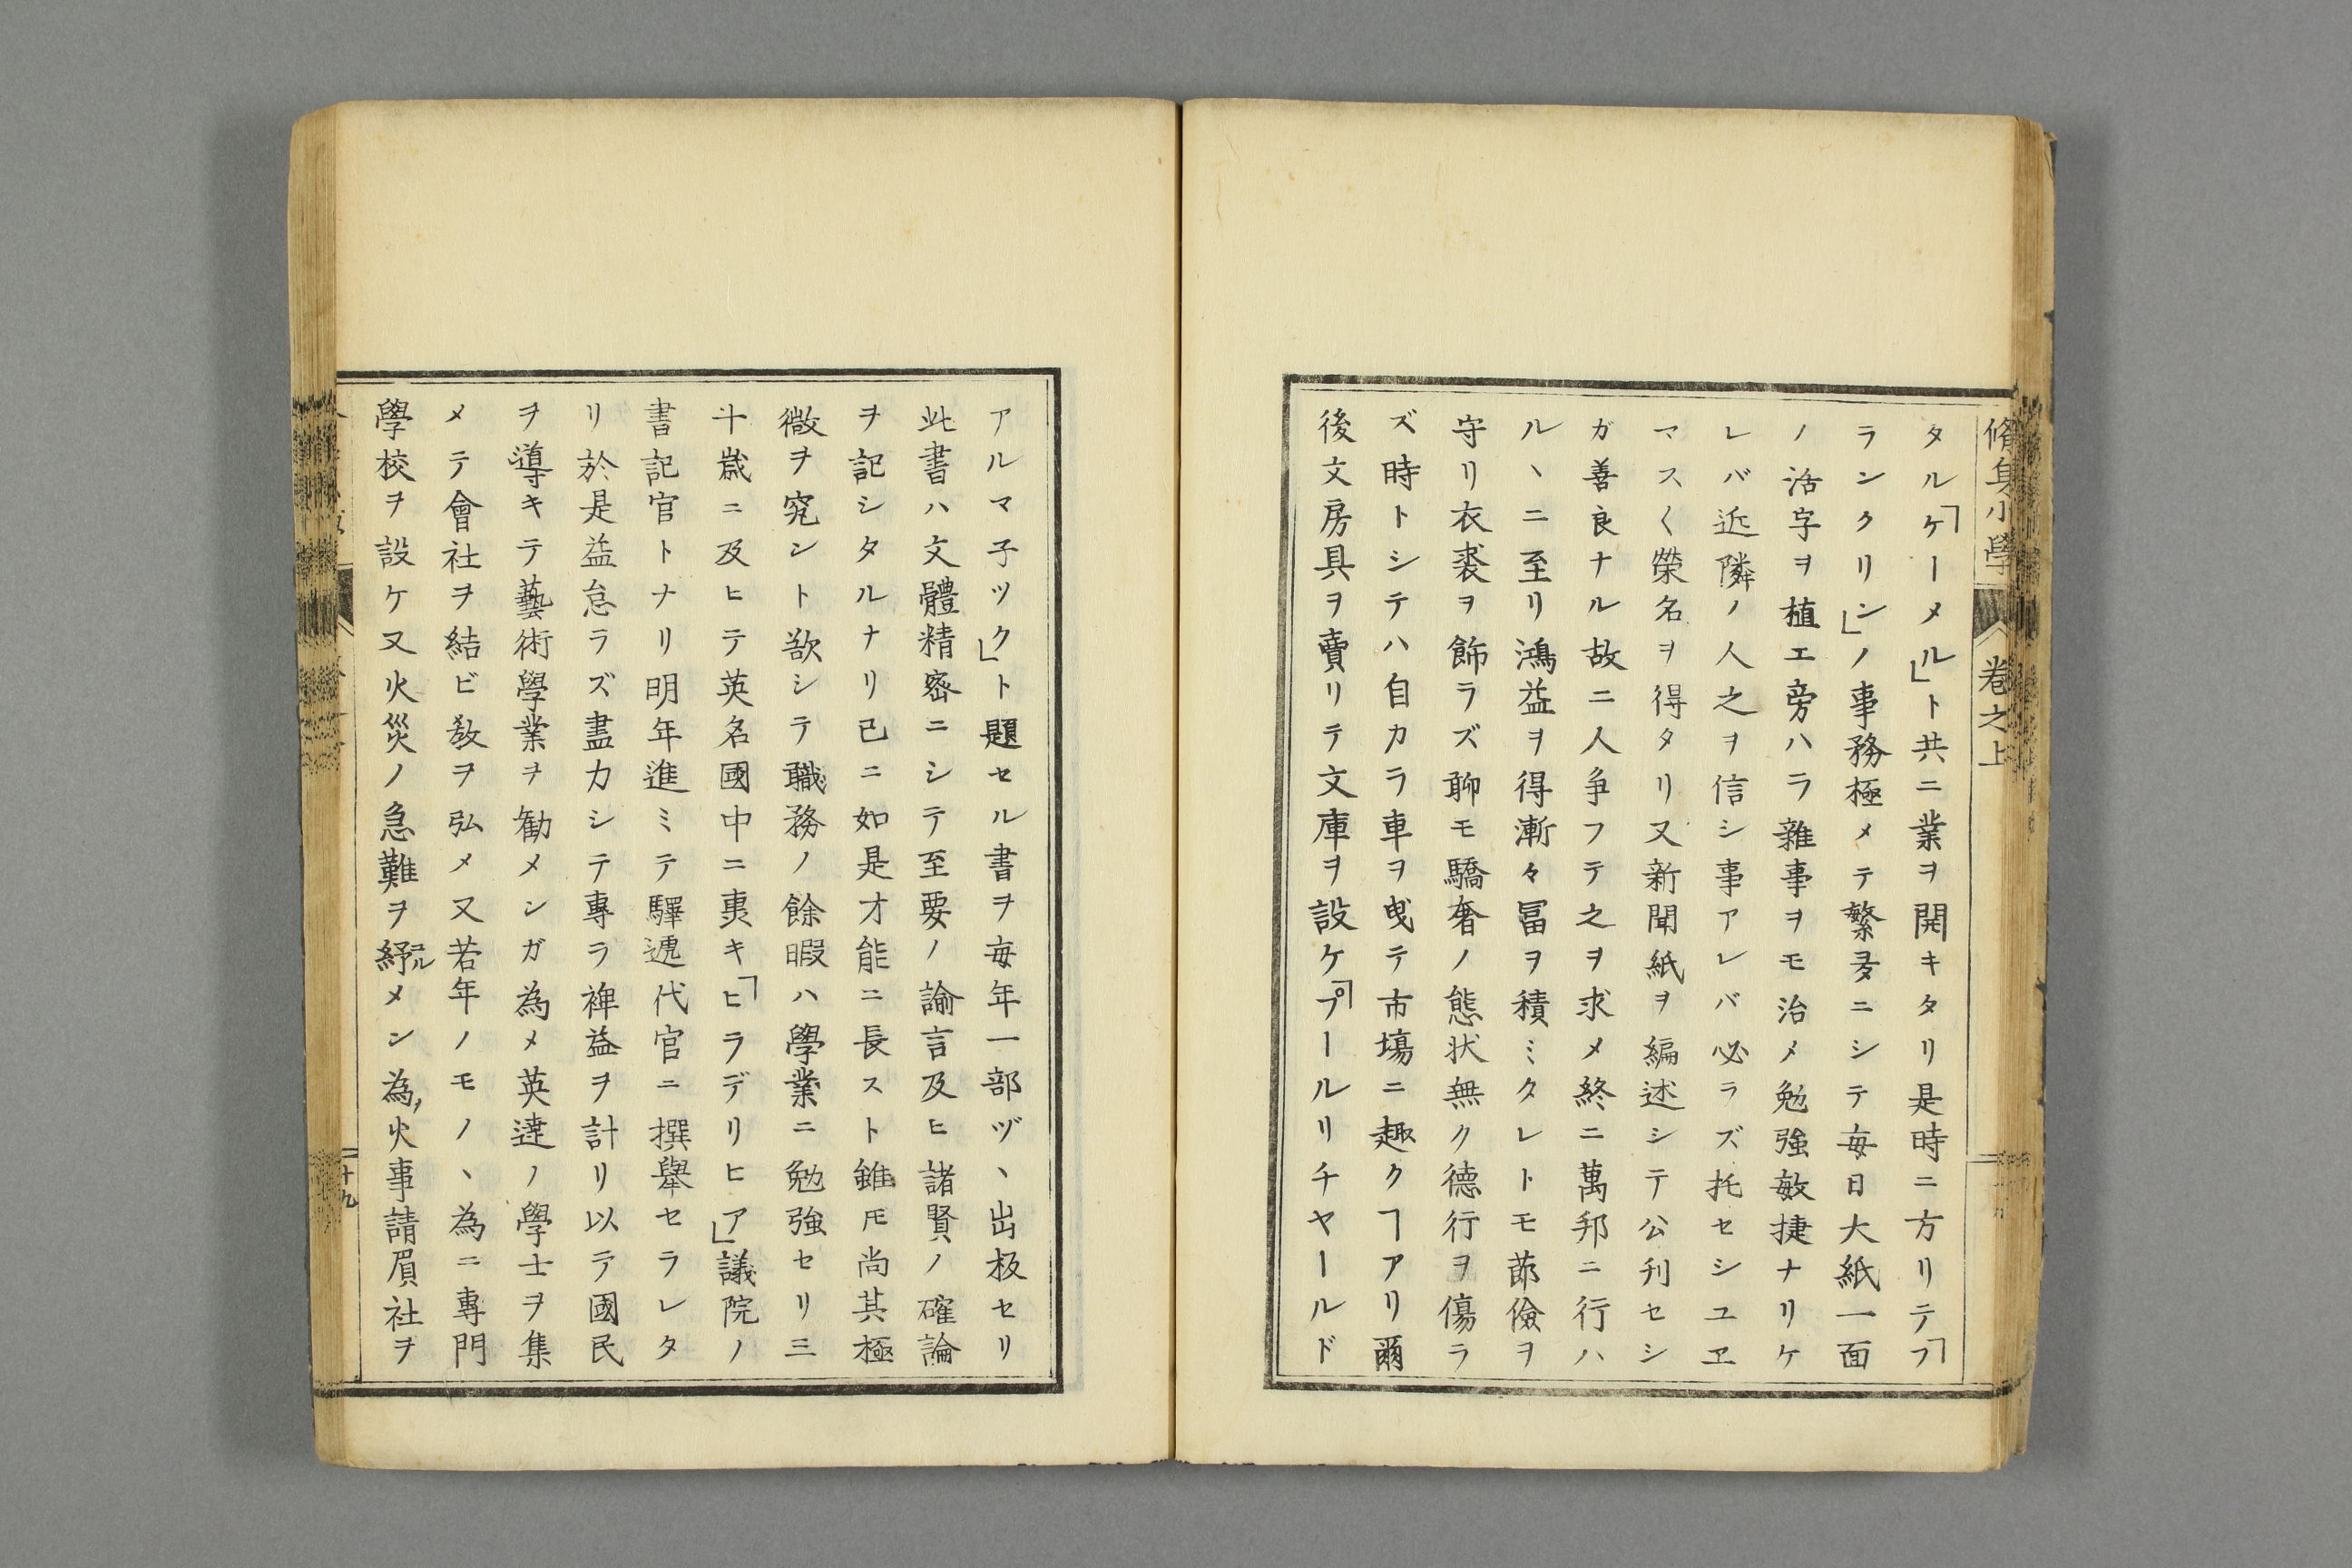 脩身小學
卷之上
タル「ケーメル」ト共ニ業ヲ開キタリ是時ニ方リテ「フ
ランクリン」ノ事務極メテ繁多ニシテ毎日大紙一面
ノ活字ヲ植エ旁ハラ雜事ヲモ治メ勉強敏捷ナリケ
レバ近隣ノ人之ヲ信シ事アレバ必ラズ托セシユヱ
マスく榮名ヲ得タリ又新聞紙ヲ編述シテ公刋セシ
ガ善良ナル故ニ人争フテ之ヲ求メ終ニ萬邦ニ行ハ
ルヽニ至リ鴻益ヲ得漸々冨ヲ積ミタレトモ莭儉ヲ
守リ衣裘ヲ飾ラズ聊モ驕奢ノ態状無ク德行ヲ傷ラ
ズ時トシテハ自カラ車ヲ曳テ市塲ニ趣クヿアリ爾
後文房具ヲ賣リテ文庫ヲ設ケ「プールリチヤールド
アルマ子ツク」ト題セル書ヲ毎年一部ヅヽ出板セリ
此書ハ文體精密ニシテ至要ノ諭言及ヒ諸賢ノ確論
ヲ記シタルナリ已ニ如是才能ニ長スト雖𪜈尚其極
微ヲ究ント欲シテ職務ノ餘暇ハ學業ニ勉強セリ三
十歳ニ及ヒテ英名國中ニ轟キ「ヒラデリヒア」議院ノ
書記官トナリ明年進ミテ驛遞代官ニ撰舉セラレタ
リ於是益怠ラズ盡力シテ專ラ裨益ヲ計リ以テ國民
ヲ導キテ藝術學業ヲ勧メンガ為メ英達ノ學士ヲ集
メテ會社ヲ結ビ教ヲ弘メ又若年ノモノヽ為ニ專門
學校ヲ設ケ又火災ノ急難ヲ紓メン為,火事請負社ヲ
二十九